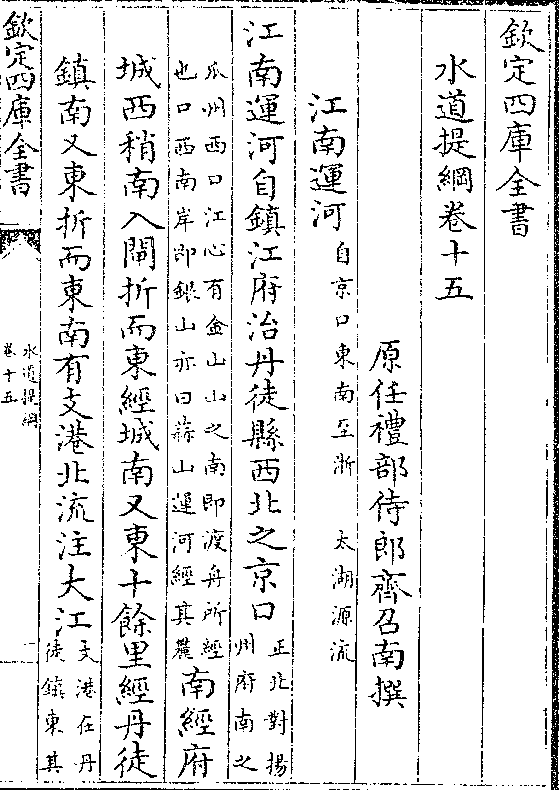 欽定四庫全書
水道提綱卷十五
原任禮部侍郎齊召南撰
江南運河自京口東南至浙 太湖源流
江南運河自鎮江府治丹徒縣西北之京口正北對揚州府南之
瓜州西口江心有金山山之南即渡舟所經也口西南岸即銀山亦曰蒜山運河經其麓南經府
城西稍南入閘折而東經城南又東十餘里經丹徒
鎮南又東折而東南有支港北流注大江支港在丹徒鎮東其
欽定四庫全書
水道提綱
卷十五